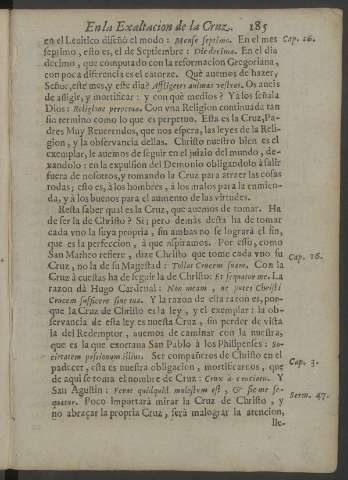 En la Exaltacion de la Cruz. 185
en el Levitico diseñó el modo: Mense septimo. En el mes Cap. 16.
septimo, esto es, el de Septiembre: Die decima. En el dia
decimo, que computado con la reformacion Gregoriana,
con poca diferencia es el catorze. Què avemos de hazer,
Señor, este mes, y este dia? Affligetis animas vestras. Os aveis
de afligir, y mortificar: y con què medios? Yà los señala
Dios: Religione perpetua. Con vna Religion continuada tan
sin termino como lo que es perpetuo. Esta es la Cruz, Pa-
dres Muy Reverendos, que nos espera, las leyes de la Reli-
gion, y la observancia dellas. Christo nuestro bien es el
exemplar, le avemos de seguir en el juizio del mundo, de-
xandolo: en la expulsion del Demonio obligandolo à salir
fuera de nosotros, y tomando la Cruz para atraer las cosas
todas; esto es, à los hombres, à los malos para la enmien-
da, y à los buenos para el aumento de las virtudes.
Resta saber qual es la Cruz, que avemos de tomar. Ha
de ser la de Christo? Si; pero demàs desta ha de tomar
cada vno la suya propria, sin ambas no se logrará el fin,
que es la perfeccion, à que aspiramos. Por esso, como
San Matheo refiere, dize Christo que tome cada vno su
Cruz, no la de su Magestad: Tollat Crucem suam. Con la Cap. 16.
Cruz à cuestas ha de seguir la de Christo: Et sequatur me. La
razon dà Hugo Cardenal: Non meam, ne putes Christi
Crucem sufficere sine tua. Y la razon de esta razon es, por-
que la Cruz de Christo es la ley, y el exemplar: la ob-
servancia de esta ley es nuestra Cruz, sin perder de vista
la del Redemptor, avemos de caminar con la nuestra,
que es la que exortava San Pablo à los Philipenses: So-
cietatem passionum illius. Ser compañeros de Christo en el Cap. 3.
padecer, esta es nuestra obligacion, mortificarnos, que
de aqui se toma el nombre de Cruz: Crux à cruciatu. Y
San Agustin: Ferat quidquid molestum est, & sic me se- Serm. 47.
quatur. Poco importarà mirar la Cruz de Christo, y
no abraçar la propria Cruz, serà malograr la atencion,
lle-